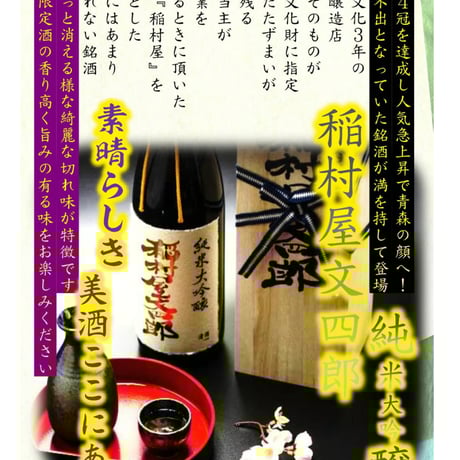 4冠を達成し人気急上昇で青森の顔へ!
不出となっていた銘酒が満を持して登場
稲村屋文四郎
純米大吟醸
文化3年の
醸造店
そのものが
文化財に指定
たたずまいが
残る
当主が
素を
るときに頂いた
『稲村屋』を
とした
にはあまり
れない銘酒
っと消える様な綺麗な切れ味が特徴です
限定酒の香り高く旨みの有る味をお楽しみください
素晴らしき
美酒ここにあ
純米大吟醸
稲村屋文四郎